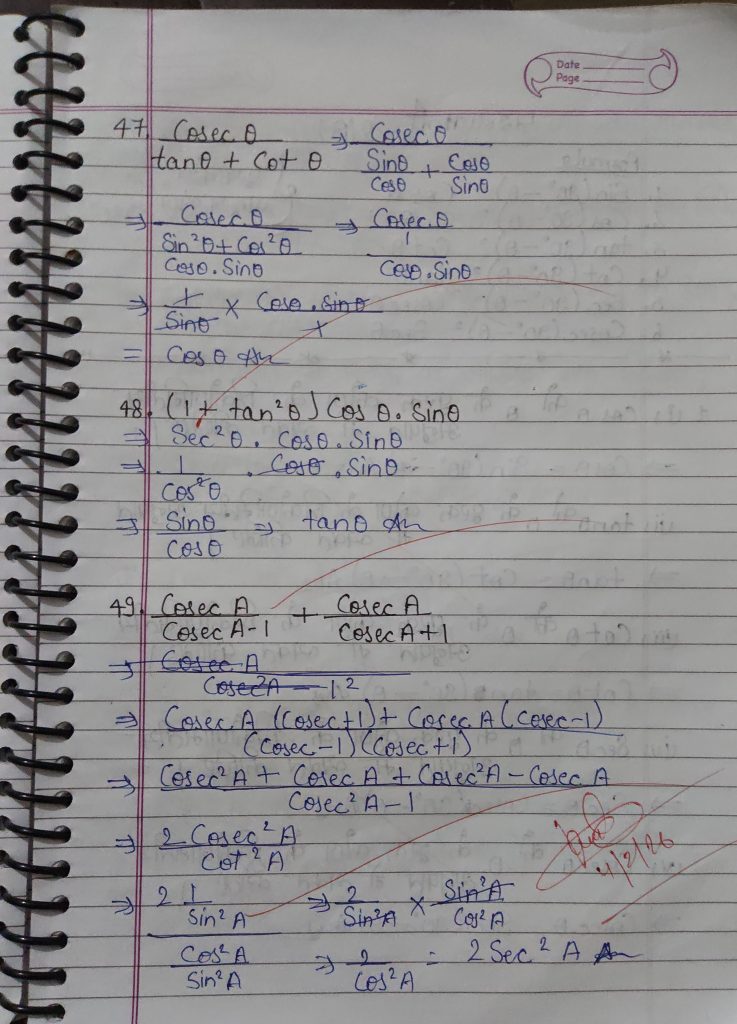 Date
Page
47. Cosec θ / tanθ + Cot θ ⇒ Cosec θ / (Sinθ/Cosθ + Cosθ/Sinθ)
⇒ Cosec θ / ((Sin²θ + Cos²θ)/(Cosθ . Sinθ)) ⇒ Cosec θ / (1/(Cosθ . Sinθ))
⇒ 1/Sinθ × Cosθ . Sinθ/1
= Cos θ An
48. (1 + tan²θ) Cos θ. Sinθ
⇒ Sec²θ . Cosθ . Sinθ
⇒ 1/Cos²θ . Cosθ . Sinθ
⇒ Sinθ/Cosθ ⇒ tanθ An
49. Cosec A/Cosec A-1 + Cosec A/Cosec A+1
⇒ Cosec A/Cosec²A - 1²
⇒ Cosec A (Cosec+1) + Cosec A (Cosec-1) / (Cosec-1) (Cosec+1)
⇒ Cosec²A + Cosec A + Cosec²A - Cosec A / Cosec²A - 1
⇒ 2 Cosec²A / Cot²A
⇒ 2 1/Sin²A / Cos²A/Sin²A ⇒ 2/Sin²A × Sin²A/Cos²A
⇒ 2/Cos²A = 2 Sec² A An
4/2/26